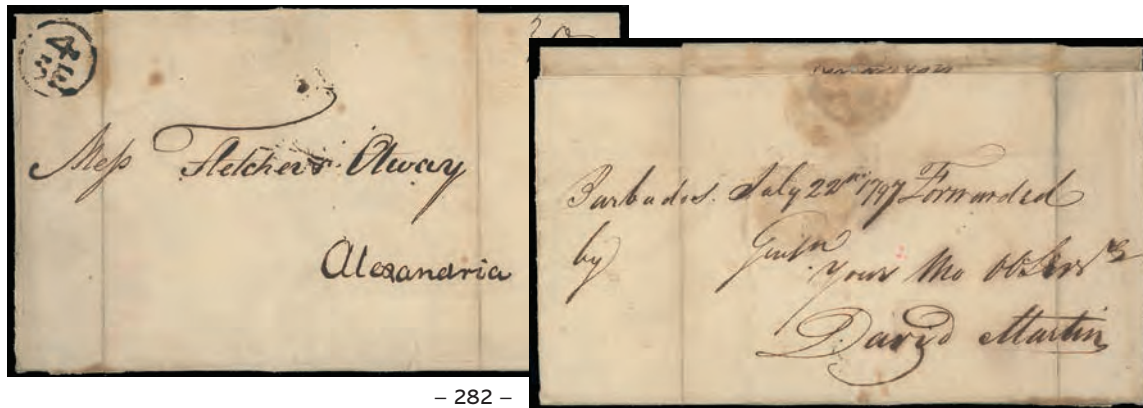 Mess Fletchers Otway
Alexandria
Barbados. July 22nd 1797 Forwarded
by Gentn
Your Mo Ob Servts
David Martin
– 282 –